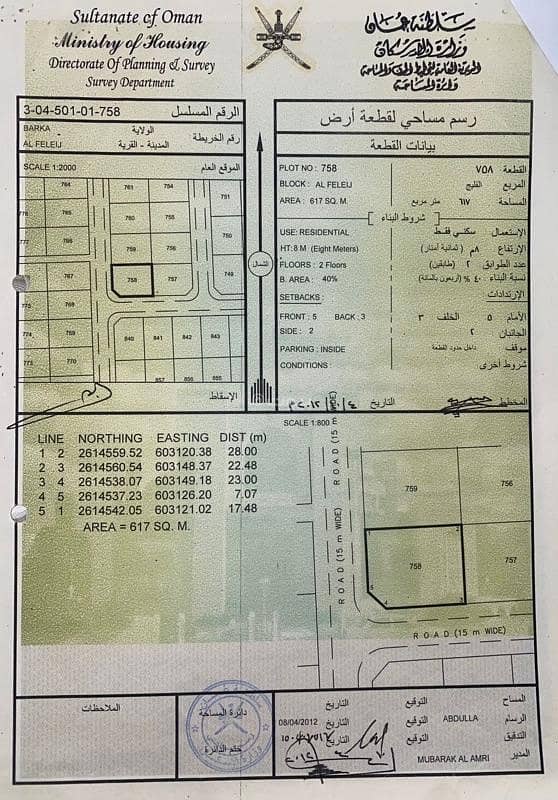 Sultanate of Oman
Ministry of Housing
Directorate Of Planning & Survey
Survey Department
سلطنة عمان
وزارة الإسكان
المديرية العامة للتخطيط والمساحة
دائرة المساحة
3-04-501-01-758 الرقم المسلسل
BARKA الولاية
رقم الخريطة
AL FELEIJ المدينة - القرية
SCALE 1:2000 الموقع العام
764 761 754
751
760 755
759 756
749
758 757
767
768
769 840 841 842 843
770
857 855
الإسقاط
رسم مساحي لقطعة أرض
بيانات القطعة
PLOT NO : 758 القطعة ٧٥٨
BLOCK : AL FELEIJ المربع الفليج
AREA : 617 SQ. M. المساحة ٦١٧ متر مربع
شروط البناء
USE: RESIDENTIAL الإستعمال سكني فقط
HT: 8 M (Eight Meters) الإرتفاع ٨م (ثمانية أمتار)
FLOORS : 2 Floors عدد الطوابق ٢ (طابقين)
B. AREA : 40% نسبة البناء ٤٠ % (أربعون بالمائة)
SETBACKS : الإرتدادات
FRONT : 5 BACK : 3 الأمام ٥ الخلف ٣
SIDE : 2 الجانبان ٢
PARKING : INSIDE موقف داخل حدود القطعة
CONDITIONS : شروط أخرى
المخطط التاريخ
الشمال
SCALE 1:800
LINE NORTHING EASTING DIST (m)
1 2 2614559.52 603120.38 28.00
2 3 2614560.54 603148.37 22.48
3 4 2614538.07 603149.18 23.00
4 5 2614537.23 603126.20 7.07
5 1 2614542.05 603121.02 17.48
AREA = 617 SQ. M.
ROAD (15 m WIDE)
ROAD (15 m WIDE)
759 756
1 2
758 757
5 4 3
ROAD (15 m WIDE)
الملاحظات
دائرة المساحة
ختم الدائرة
التاريخ التوقيع المساح
08/04/2012 التاريخ التوقيع ABDULLA الرسام
التاريخ التوقيع التدقيق
MUBARAK AL AMRI المدير